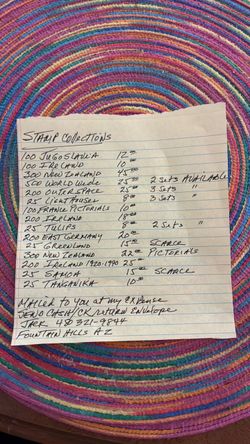 STAMP COLLECTIONS
100 JUGOSLAVIA 12.00
100 IRELAND 10.00
300 NEW ZEALAND 45.00
500 WORLD WIDE 25.00 2 SETS AVAILABLE
200 OUTER SPACE 25.00 3 SETS "
25 LIGHTHOUSES 8.00 3 SETS "
100 FRANCE PICTORIALS
200 IRELAND 18.00
25 TULIPS 8.00 2 SETS "
200 EAST GERMANY 20.00
25 GREENLAND 15.00 SCARCE
300 NEW ZEALAND 22.00 PICTORIALS
200 IRELAND 1920-1990 25.00
25 SAMOA 15.00 SCARCE
25 TANGANIKA 10.00
MAILED TO YOU AT MY EXPENSE
SEND CASH/CK, RETURN ENVELOPE
JACK 480 321-9844
FOUNTAIN HILLS AZ